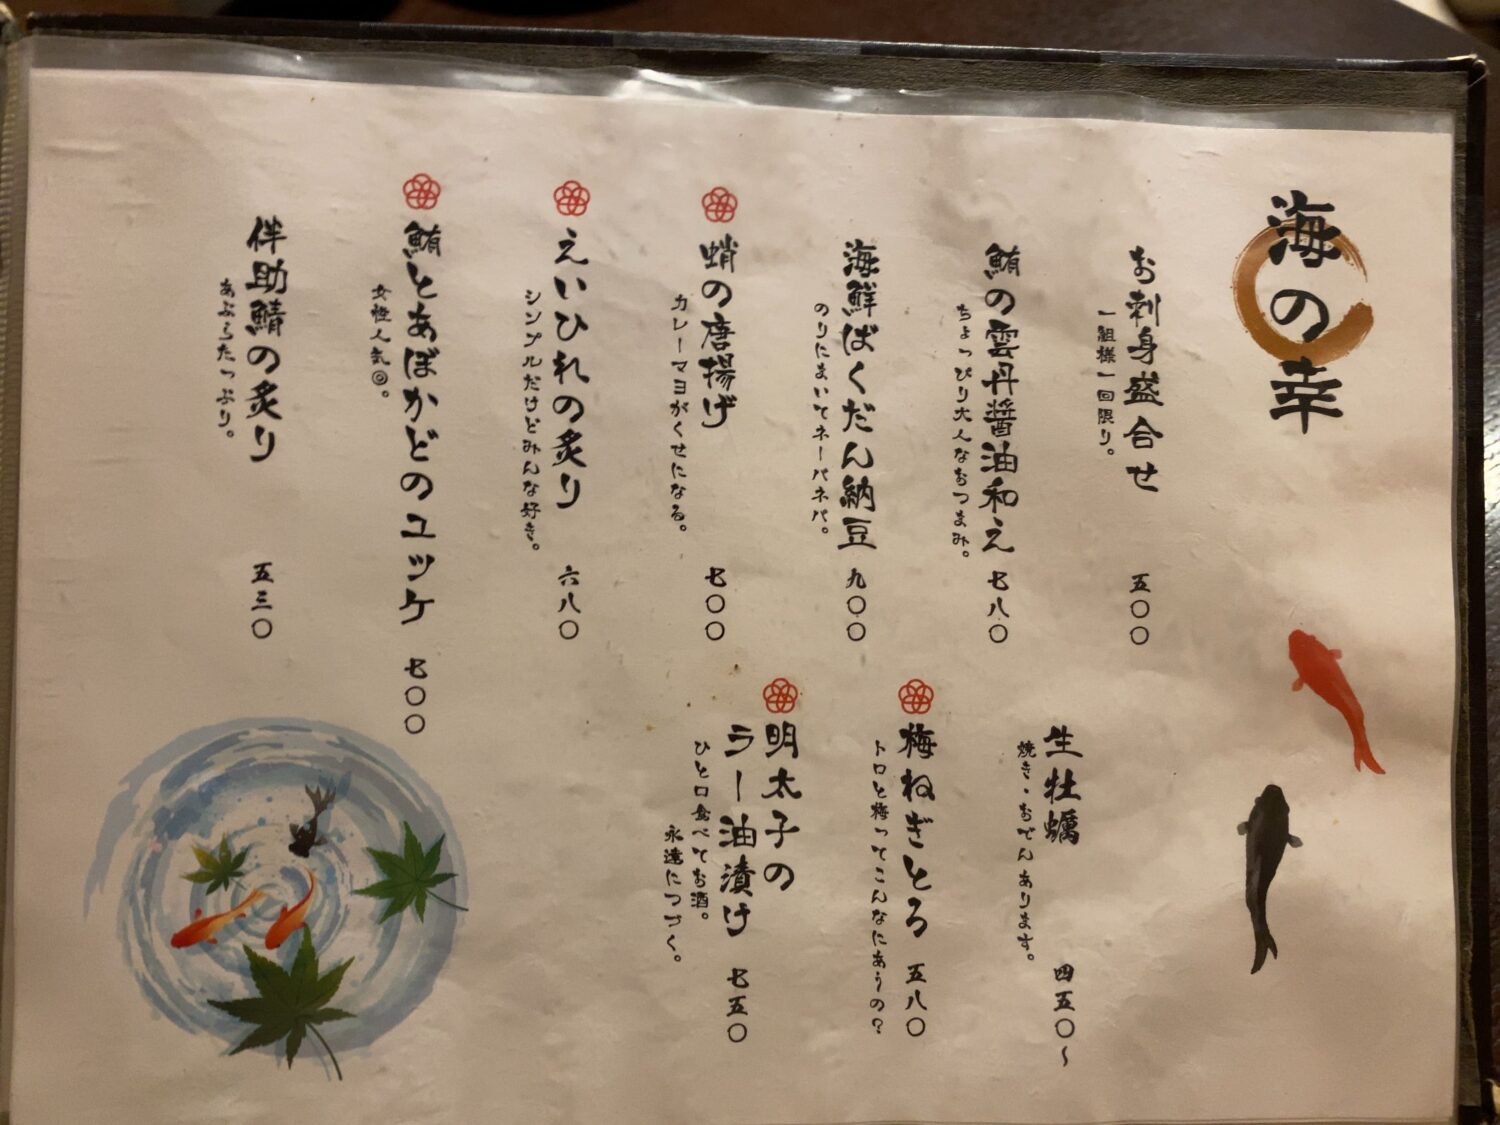 海の幸
お刺身盛合せ 五〇〇
一組様一回限り。
鮪の雲丹醤油和え 七八〇
ちょっぴり大人なおつまみ。
海鮮ばくだん納豆 九〇〇
のりにまいてネーバネバ。
蛸の唐揚げ 七〇〇
カレーマヨがくせになる。
えいひれの炙り 六八〇
シンプルだけどみんな好き。
鮪とあぼかどのユッケ 七〇〇
女性人気◎。
伴助鯖の炙り 五三〇
あぶらたっぷり。
生牡蠣 四五〇～
焼き・おでんあります。
梅ねぎとろ 五八〇
トロと梅ってこんなにあうの？
明太子の
ラー油漬け 七五〇
ひと口食べてお酒。
永遠につづく。